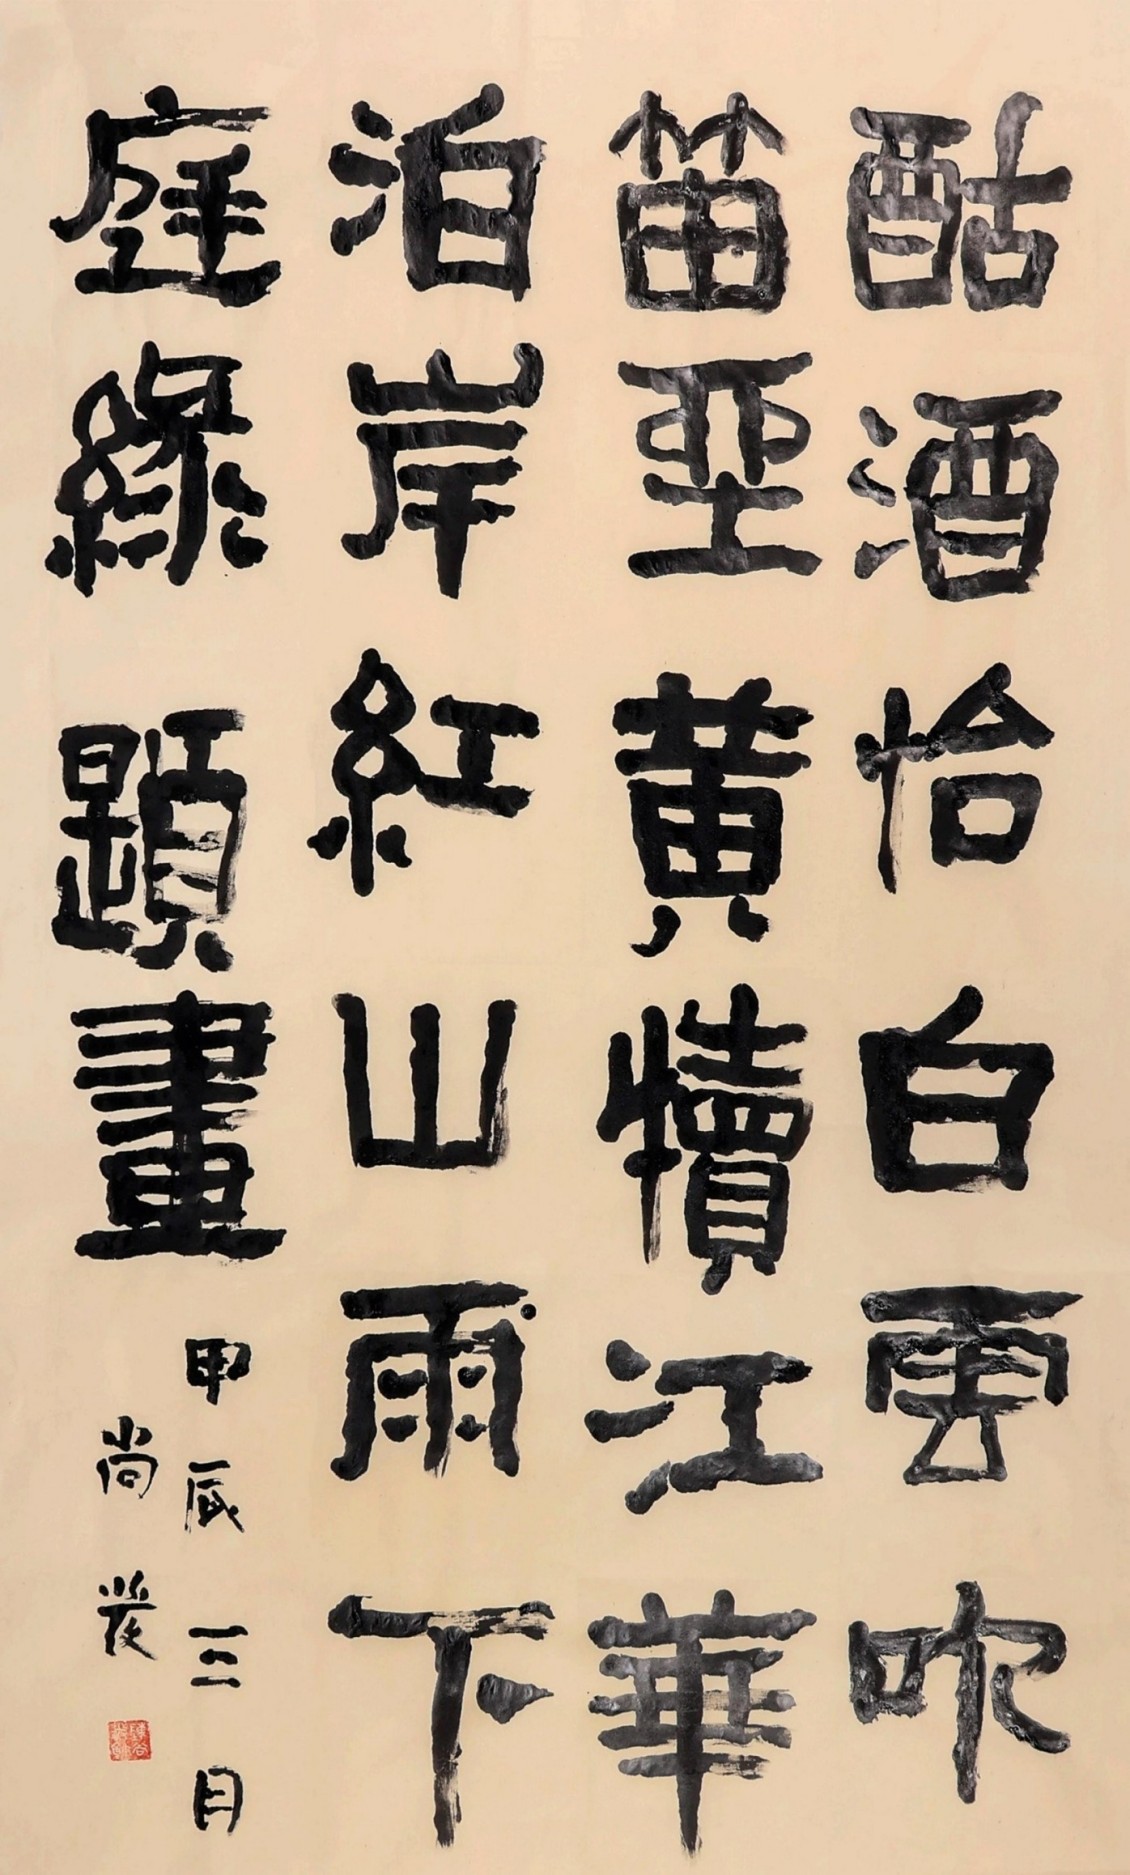 酤酒恰白雲吹
笛亜黄犢江華
泊岸紅山雨下
庭緑題畫
甲辰三月
尚